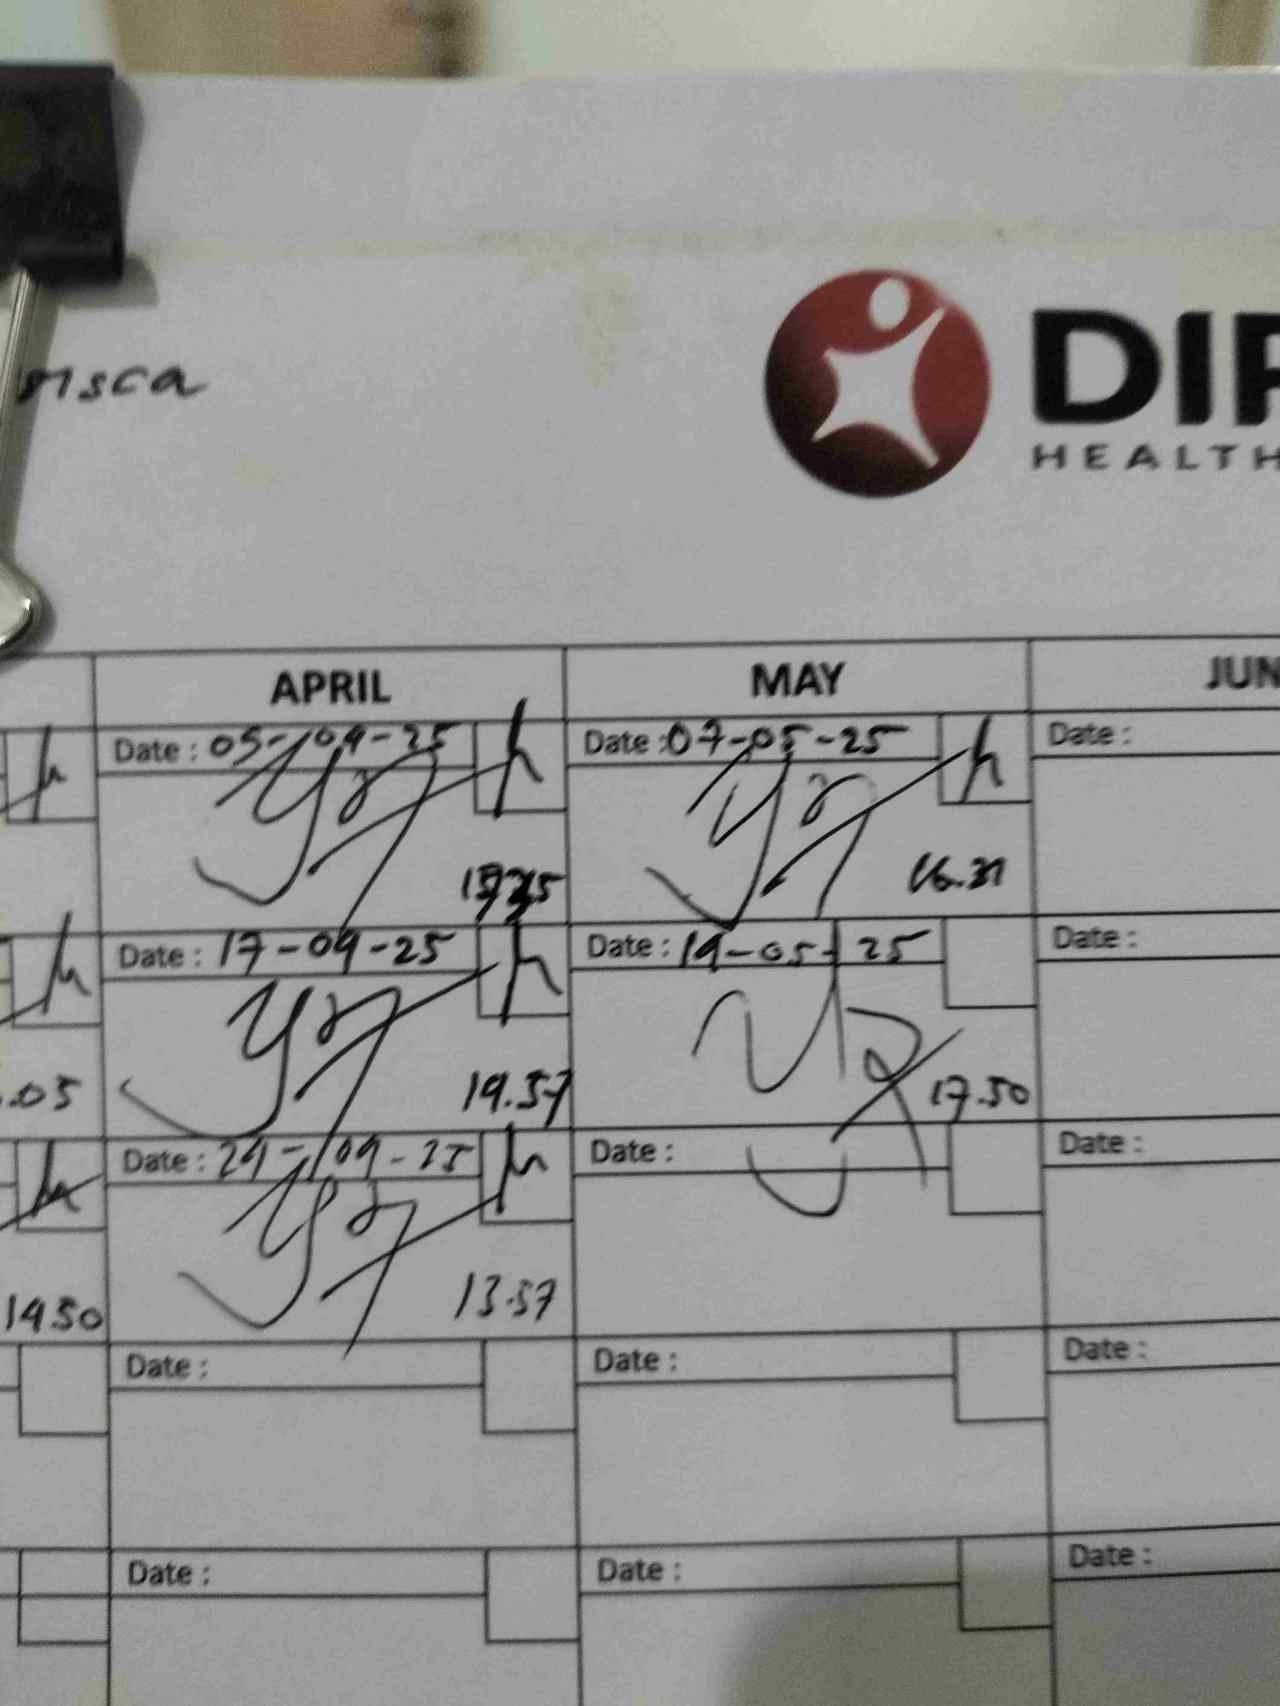 DIP
HEALTH
APRIL MAY JUN
Date : 05-04-25 Date : 07-05-25 Date :
16.31
Date : 17-04-25 Date : 19-05-25 Date :
.05 14.57 17.50
Date : 29-04-25 Date : Date :
14.50 13.57
Date : Date : Date :
Date : Date : Date :